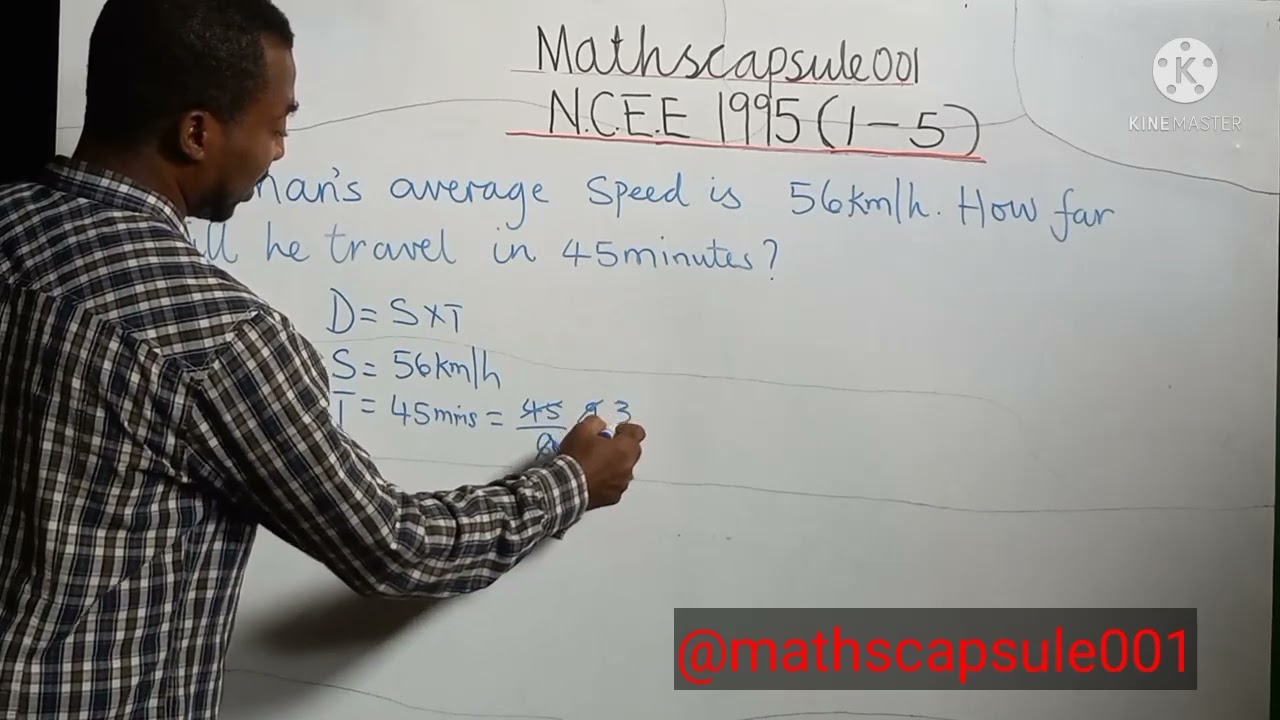 Mathscapsule001
N.C.E.E 1995 (1-5)
KINEMASTER
average speed is 56km/h. How far
he travel in 45minutes?
D = S×T
S = 56km/h
T = 45mins = 45 9 3
@mathscapsule001